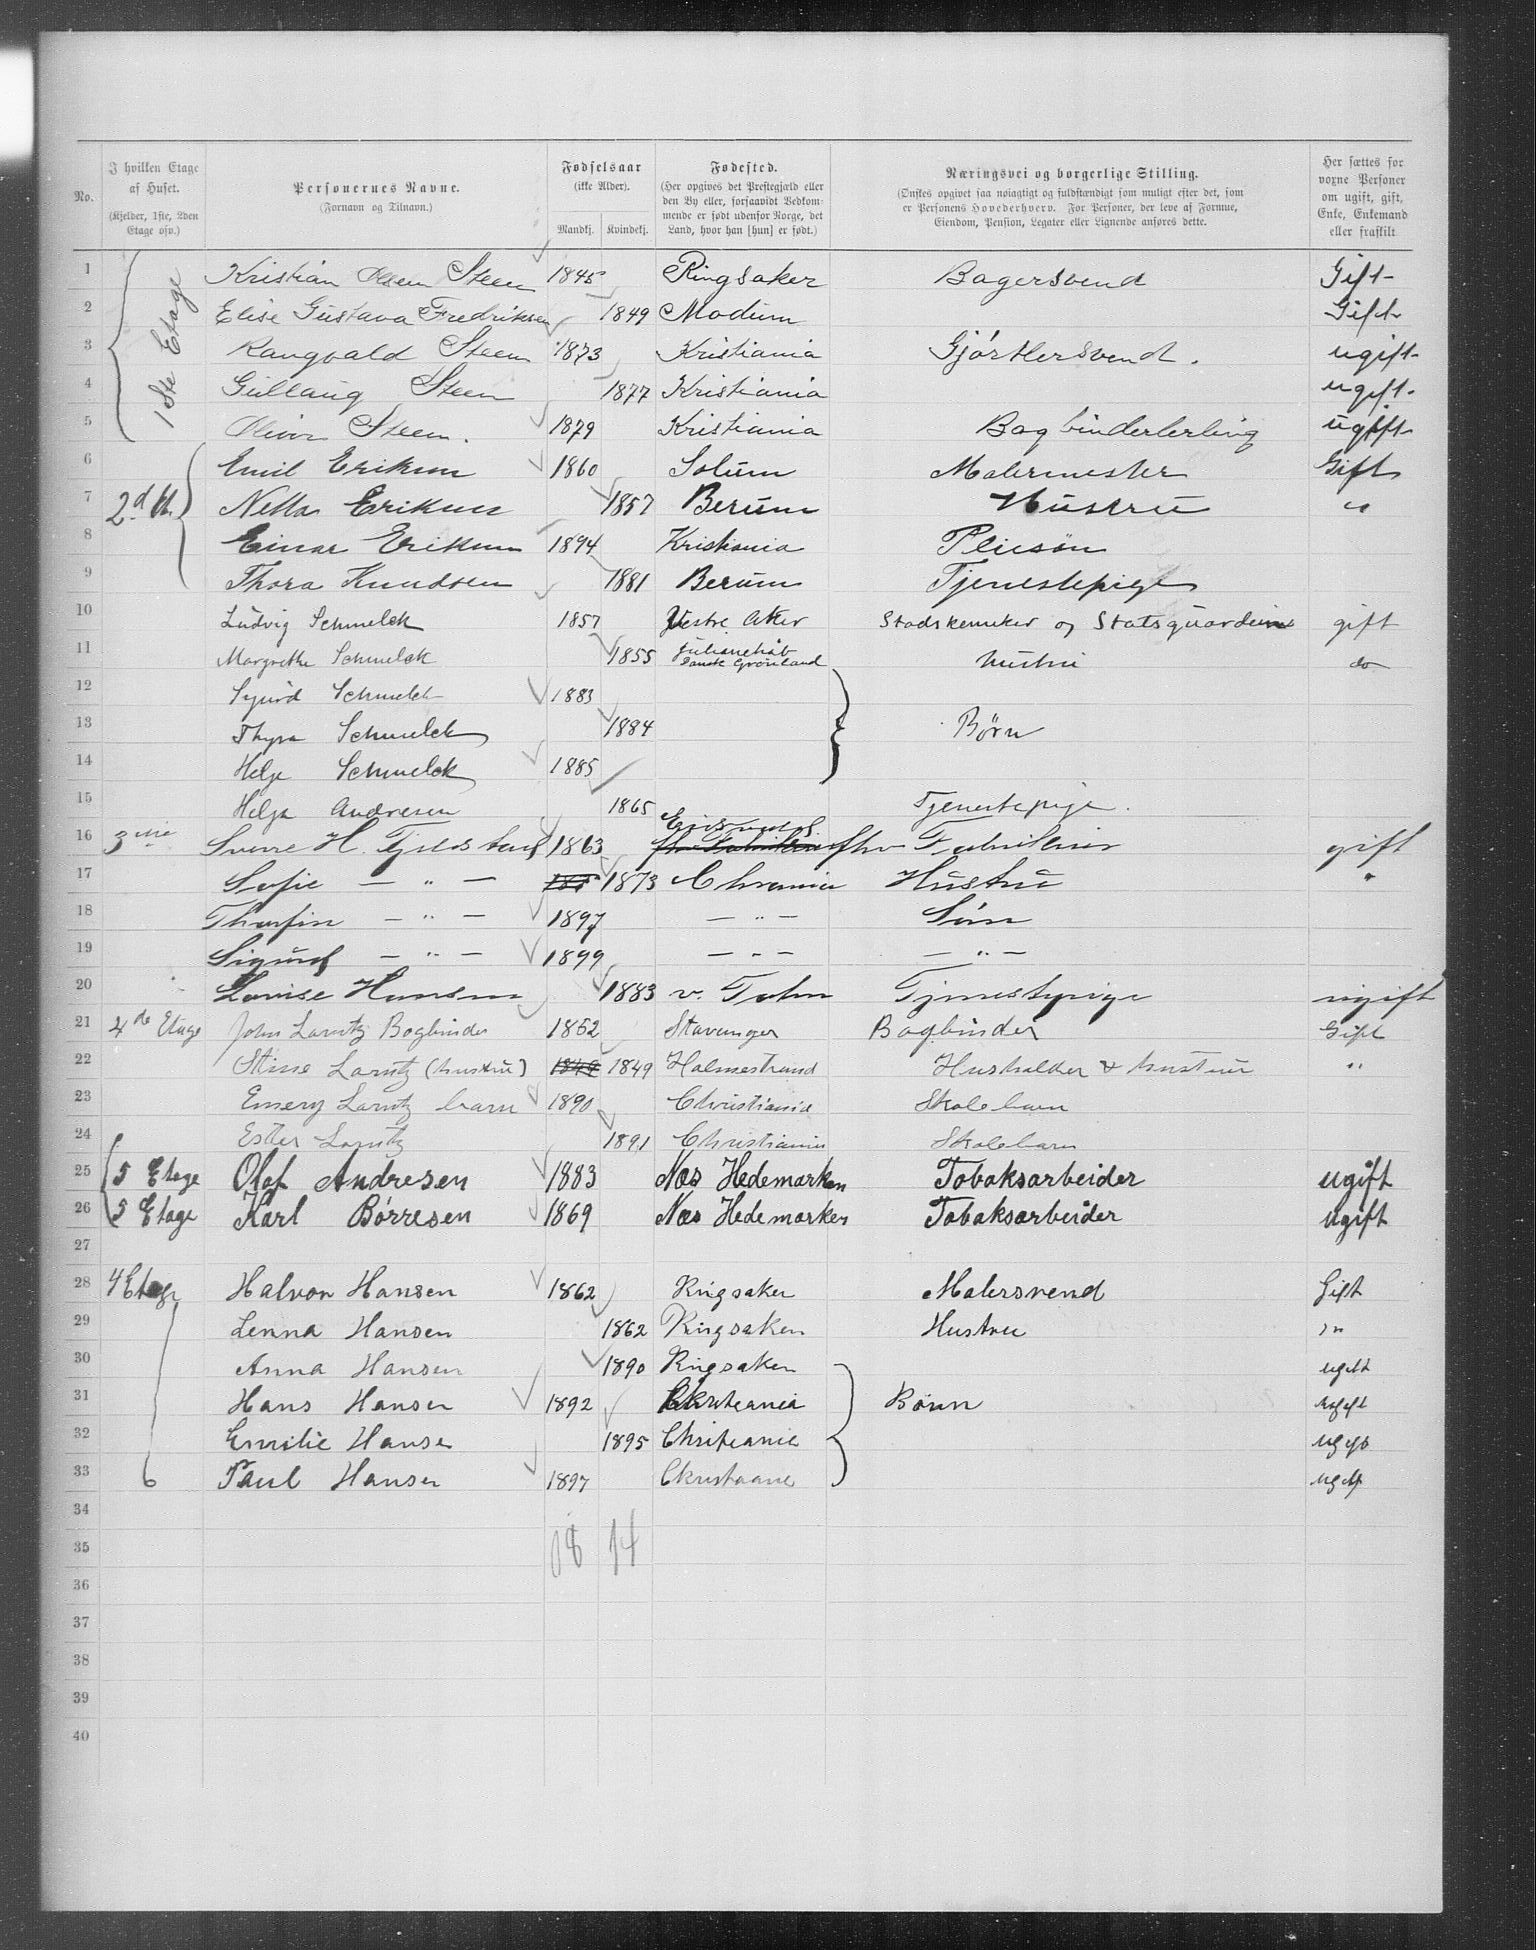 No.
I hvilken Etage af Huset. (Kjelder, 1ste, 2den Etage osv.)
Personernes Navne. (Fornavn og Tilnavn.)
Fødselsaar (ikke Alder). Mandkj. Kvindekj.
Fødested. (Her opgives det Prestegjæld eller den By eller, forsaavidt Bedkommende er født udenfor Norge, det Land, hvor han [hun] er født.)
Næringsvei og borgerlige Stilling. (Ønskes opgivet saa nøiagtigt og fuldstændigt som muligt efter det, som er Personens Hovederhverv. For Personer, der leve af Formue, Eiendom, Pension, Legater eller Lignende anføres dette.
Her sættes for voxne Personer om ugift, gift, Enke, Enkemand eller fraskilt
1ste Etage
1 Kristian Olsen Steen 1845 Ringsaker Bagersvend Gift
2 Elise Gustava Fredriksen 1849 Modum Gift
3 Rangvald Steen 1873 Kristiania Gjørtlersvend. ugift
4 Gullaug Steen 1877 Kristiania ugift
5 Oliver Steen. 1879 Kristiania Bogbinderlerling ugift
6 Emil Eriksen 1860 Solum Malermester Gift
7 2d Et. Netta Eriksen 1857 Berum Hustru "
8 Einar Eriksen 1894 Kristiania Pliesøn
9 Thora Knudsen 1881 Berum Tjenestepige
10 Ludvig Schmelck 1857 Vestre Aker Stadskemiker og Statsguardein gift
11 Margrethe Schmelck 1855 Julianehåb Dansk Grønland hustru do
12 Sigurd Schmelck 1883
13 Thyra Schmelck 1884 Børn
14 Helge Schmelck 1885
15 Helga Andresen 1865 Tjenestepige.
16 3die Sverre H. Fjeldstad 1863 Eidsvold fhv Fabrikeier gift
17 Sofie — " — 1873 Chrania Hustru "
18 Thorfin — " — 1897 — " — Søn
19 Sigurd — " — 1899 — " — — " —
20 Louise Hansen 1883 v. Toten Tjenestepige ugift
21 4de Etage John Larntz Bogbinder 1852 Stavanger Bogbinder Gift
22 Stine Larntz (hustru) 1849 1849 Holmestrand Husholder & hustru "
23 Emery Larntz barn 1890 Christiania Skolebarn
24 Ester Larntz 1891 Christiania Skolebarn
25 5 Etage Olaf Andresen 1883 Næs Hedemarken Tobaksarbeider ugift
26 5 Etage Karl Børresen 1869 Næs Hedemarken Tobaksarbeider ugift
27
28 4 Etage Halvor Hansen 1862 Ringsaker Malersvend Gift
29 Lenna Hansen 1862 Ringsaker Hustru "
30 Anna Hansen 1890 Ringsaker ugift
31 Hans Hansen 1892 Christeania Børn ugift
32 Emilie Hansen 1895 Christeania ugift
33 Paul Hansen 1897 Christiania ugift
34
35 18 14
36
37
38
39
40